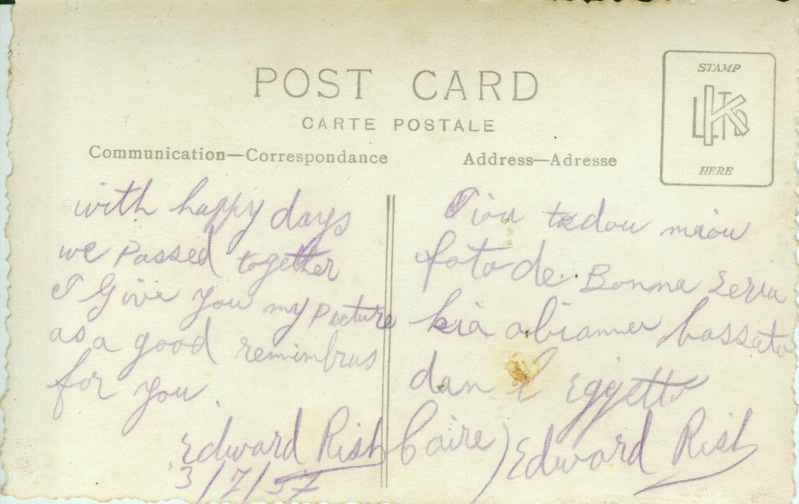 POST CARD
CARTE POSTALE
Communication—Correspondance
Address—Adresse
STAMP
HERE
with happy days
we passed together
I Give you my Picture
as a good remimbrus
for you.
Edward Rish
3/7/57
Tiou tedou miou
foto de Bonma seria
kia abiamer bassato
dan l Egyetto
Caire) Edward Rish